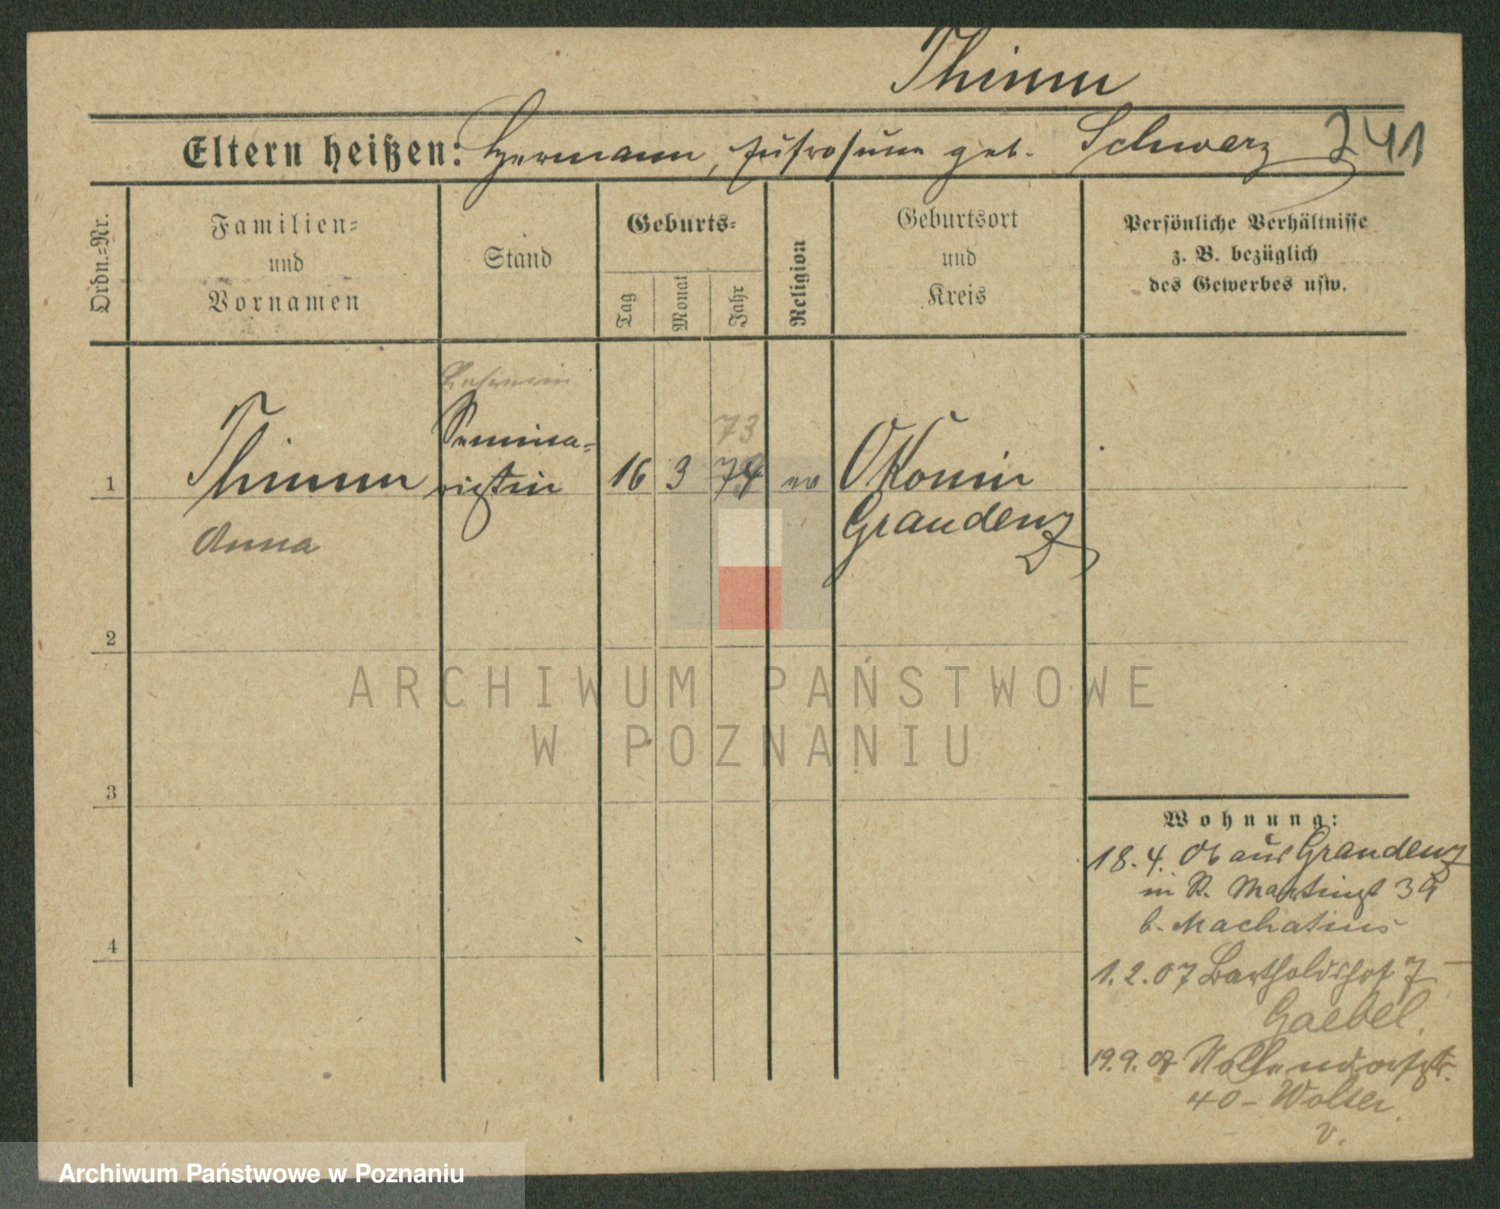 Thimm
Eltern heißen: Hermann, geb. Schwarz 241
Ordn.=Nr.
Familien=
und
Vornamen
Stand
Geburts=
Tag
Monat
Jahr
Religion
Geburtsort
und
Kreis
Persönliche Verhältnisse
z. B. bezüglich
des Gewerbes usw.
Lehrerin
Semina=
73
1 Thimm ristin 16 3 74 ev Okonin
Graudenz
Anna
2
3
4
Wohnung:
18.4.06 aus Graudenz
in P. Martinst 39
b. Machatius
1.2.07 Bartholdshof 7
Gaebel.
19.9.07 Nollendorfstr.
40 - Wolter.
v.
ARCHIWUM PAŃSTWOWE
W POZNANIU
Archiwum Państwowe w Poznaniu